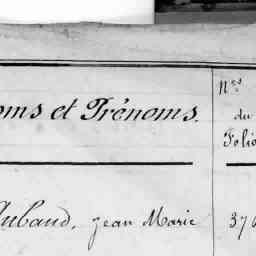 oms et Prénoms.
Nos
du
Folio
Aubaud, Jean Marie 376